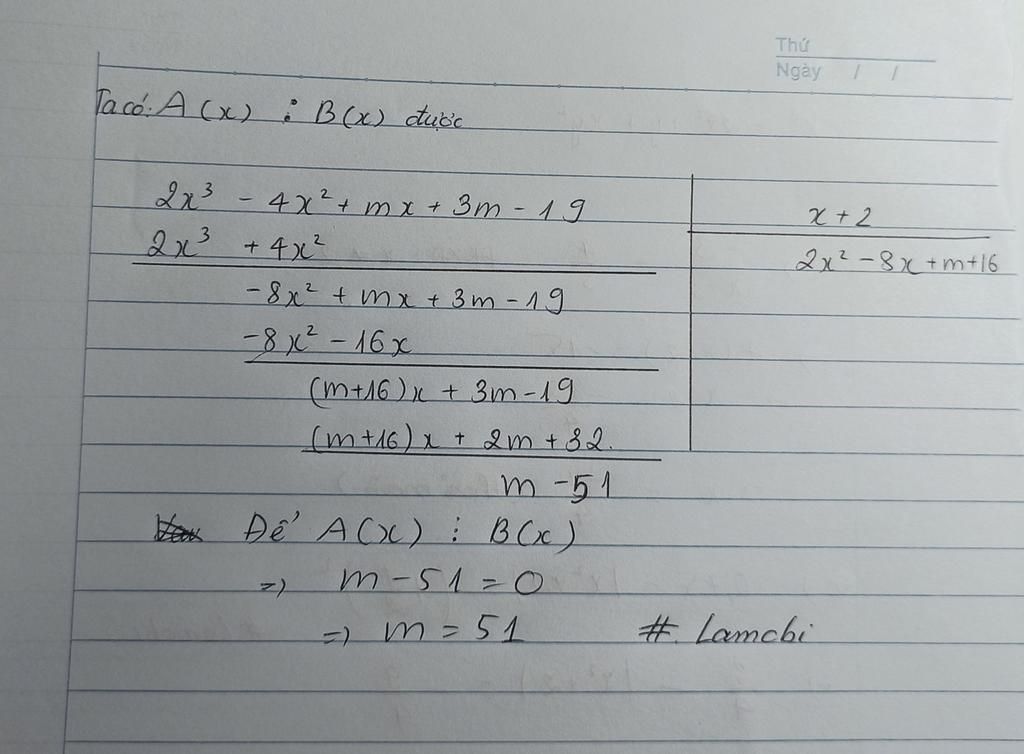 Thứ
Ngày / /
Ta có: A(x) ⋮ B(x) được
2x³ - 4x² + mx + 3m - 19
x + 2
2x³ + 4x²
2x² - 8x + m + 16
-8x² + mx + 3m - 19
-8x² - 16x
(m+16)x + 3m - 19
(m+16)x + 2m + 32.
m - 51
Để A(x) ⋮ B(x)
=> m - 51 = 0
=> m = 51 # Lamchi